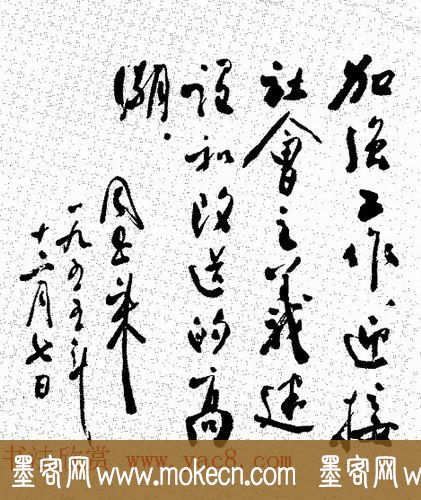 加强工作，迎接
社會主義建
設和改造的高
潮．
周恩来
一九五五年
十二月七日
书法欣赏 www.yac8.com
墨客网 www.mokecn.com 墨客网